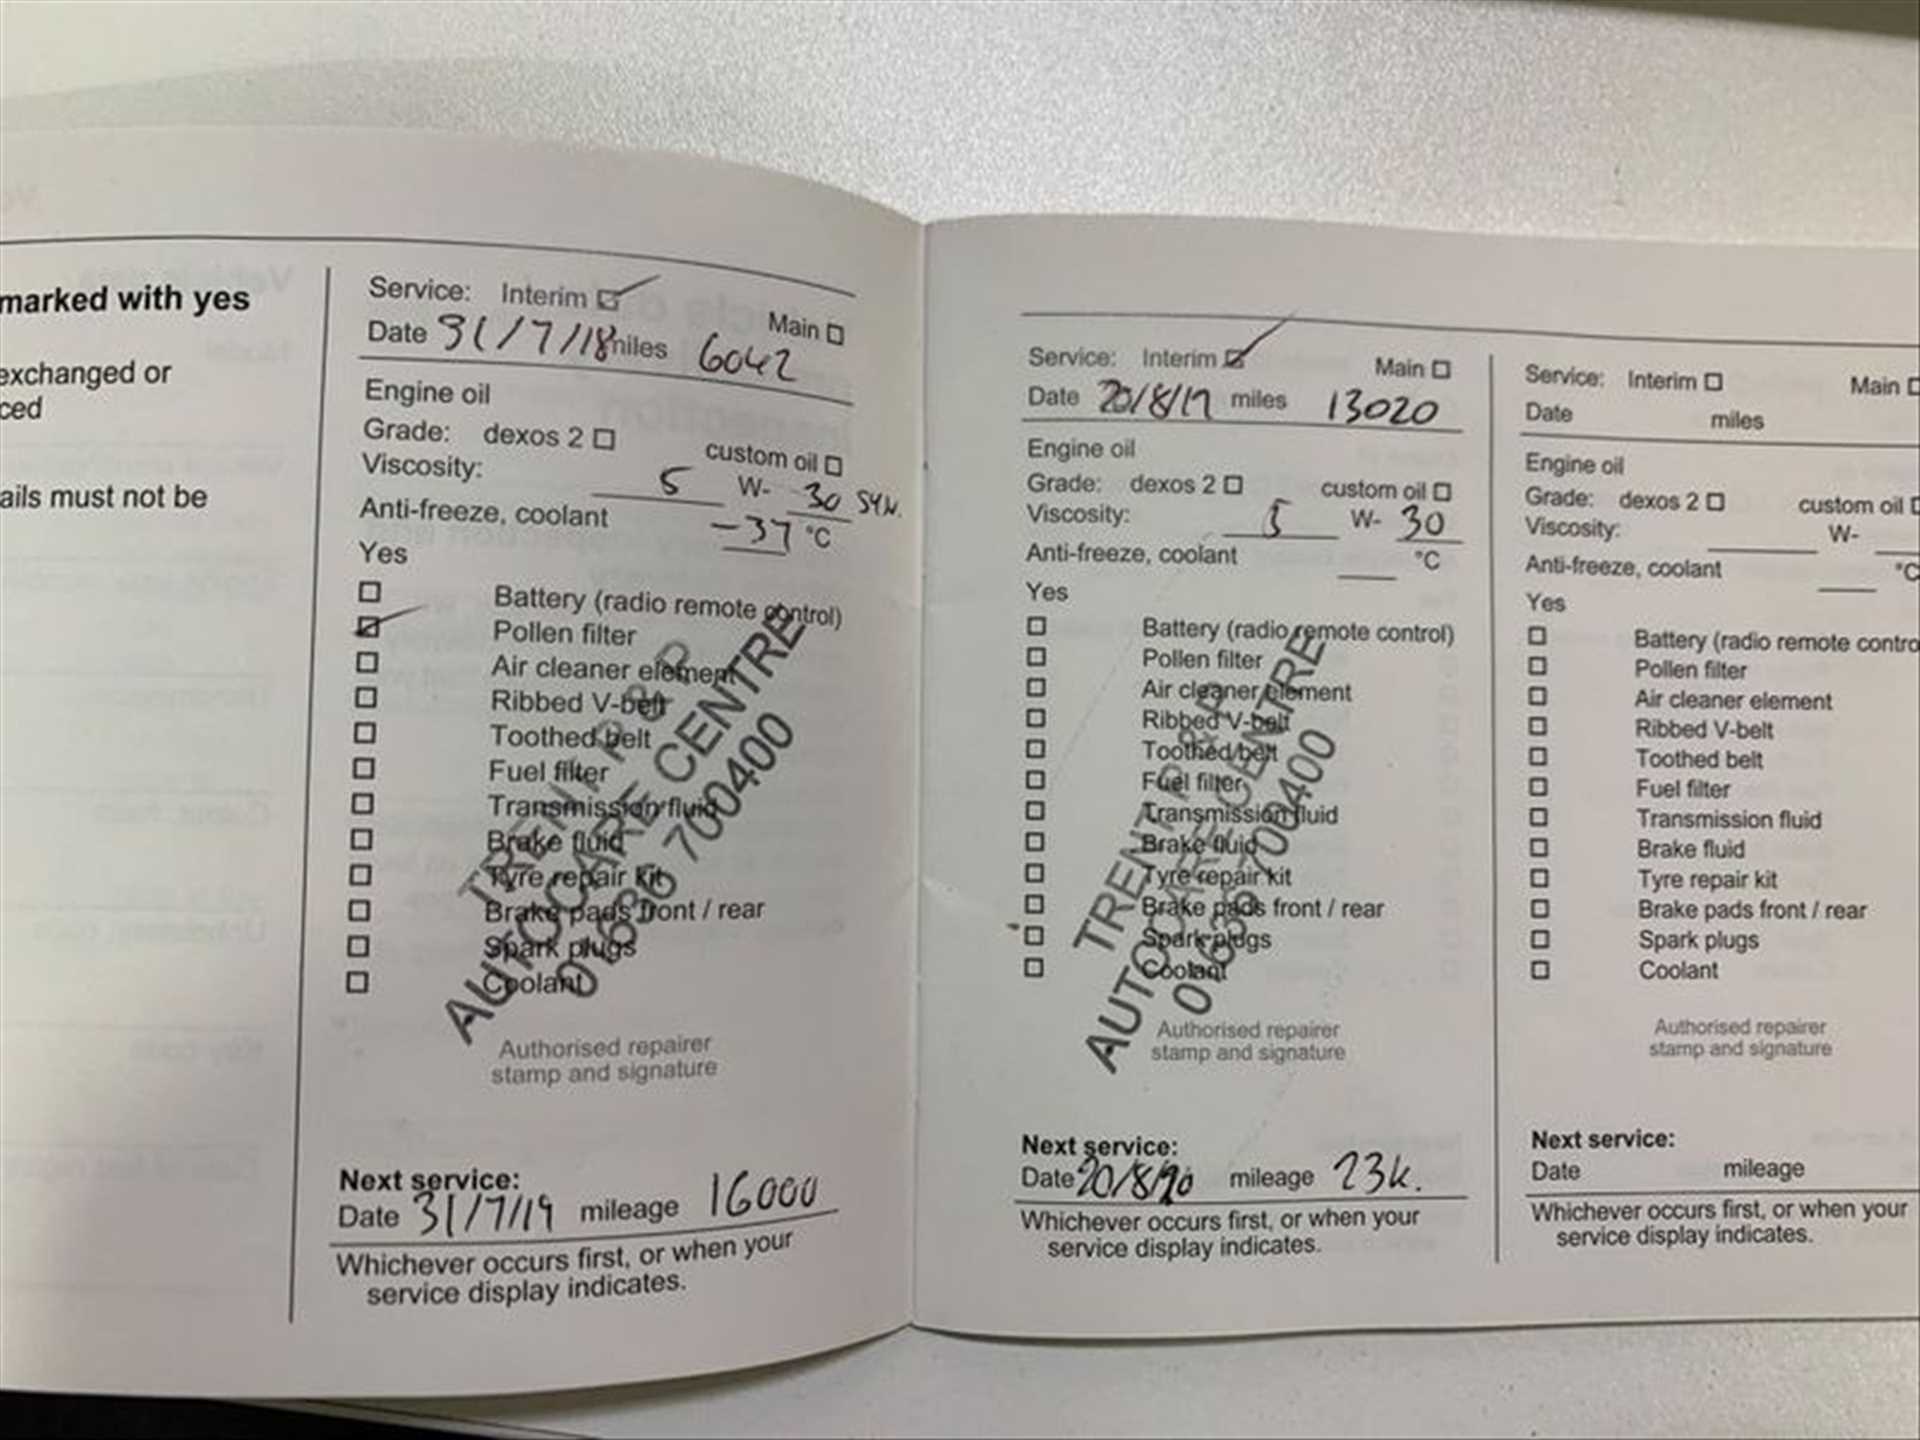 marked with yes
exchanged or
ced
ails must not be
Service: Interim
Main
Date 31/7/18 miles 6042
Engine oil
Grade: dexos 2 custom oil
Viscosity: 5 W- 30 SYN.
Anti-freeze, coolant -37 °C
Yes
Battery (radio remote control)
Pollen filter
Air cleaner element
Ribbed V-belt
Toothed belt
Fuel filter
Transmission fluid
Brake fluid
Tyre repair kit
Brake pads front / rear
Spark plugs
Coolant
TRENT P & P
AUTOCARE CENTRE
01636 700400
Authorised repairer
stamp and signature
Next service:
Date 31/7/19 mileage 16000
Whichever occurs first, or when your
service display indicates.
Service: Interim Main
Date 20/8/19 miles 13020
Engine oil
Grade: dexos 2 custom oil
Viscosity: 5 W- 30
Anti-freeze, coolant °C
Yes
Battery (radio remote control)
Pollen filter
Air cleaner element
Ribbed V-belt
Toothed belt
Fuel filter
Transmission fluid
Brake fluid
Tyre repair kit
Brake pads front / rear
Spark plugs
Coolant
TRENT P & P
AUTOCARE CENTRE
01636 700400
Authorised repairer
stamp and signature
Next service:
Date 20/8/20 mileage 23k.
Whichever occurs first, or when your
service display indicates.
Service: Interim Main
Date miles
Engine oil
Grade: dexos 2 custom oil
Viscosity: W-
Anti-freeze, coolant °C
Yes
Battery (radio remote contro
Pollen filter
Air cleaner element
Ribbed V-belt
Toothed belt
Fuel filter
Transmission fluid
Brake fluid
Tyre repair kit
Brake pads front / rear
Spark plugs
Coolant
Authorised repairer
stamp and signature
Next service:
Date mileage
Whichever occurs first, or when your
service display indicates.